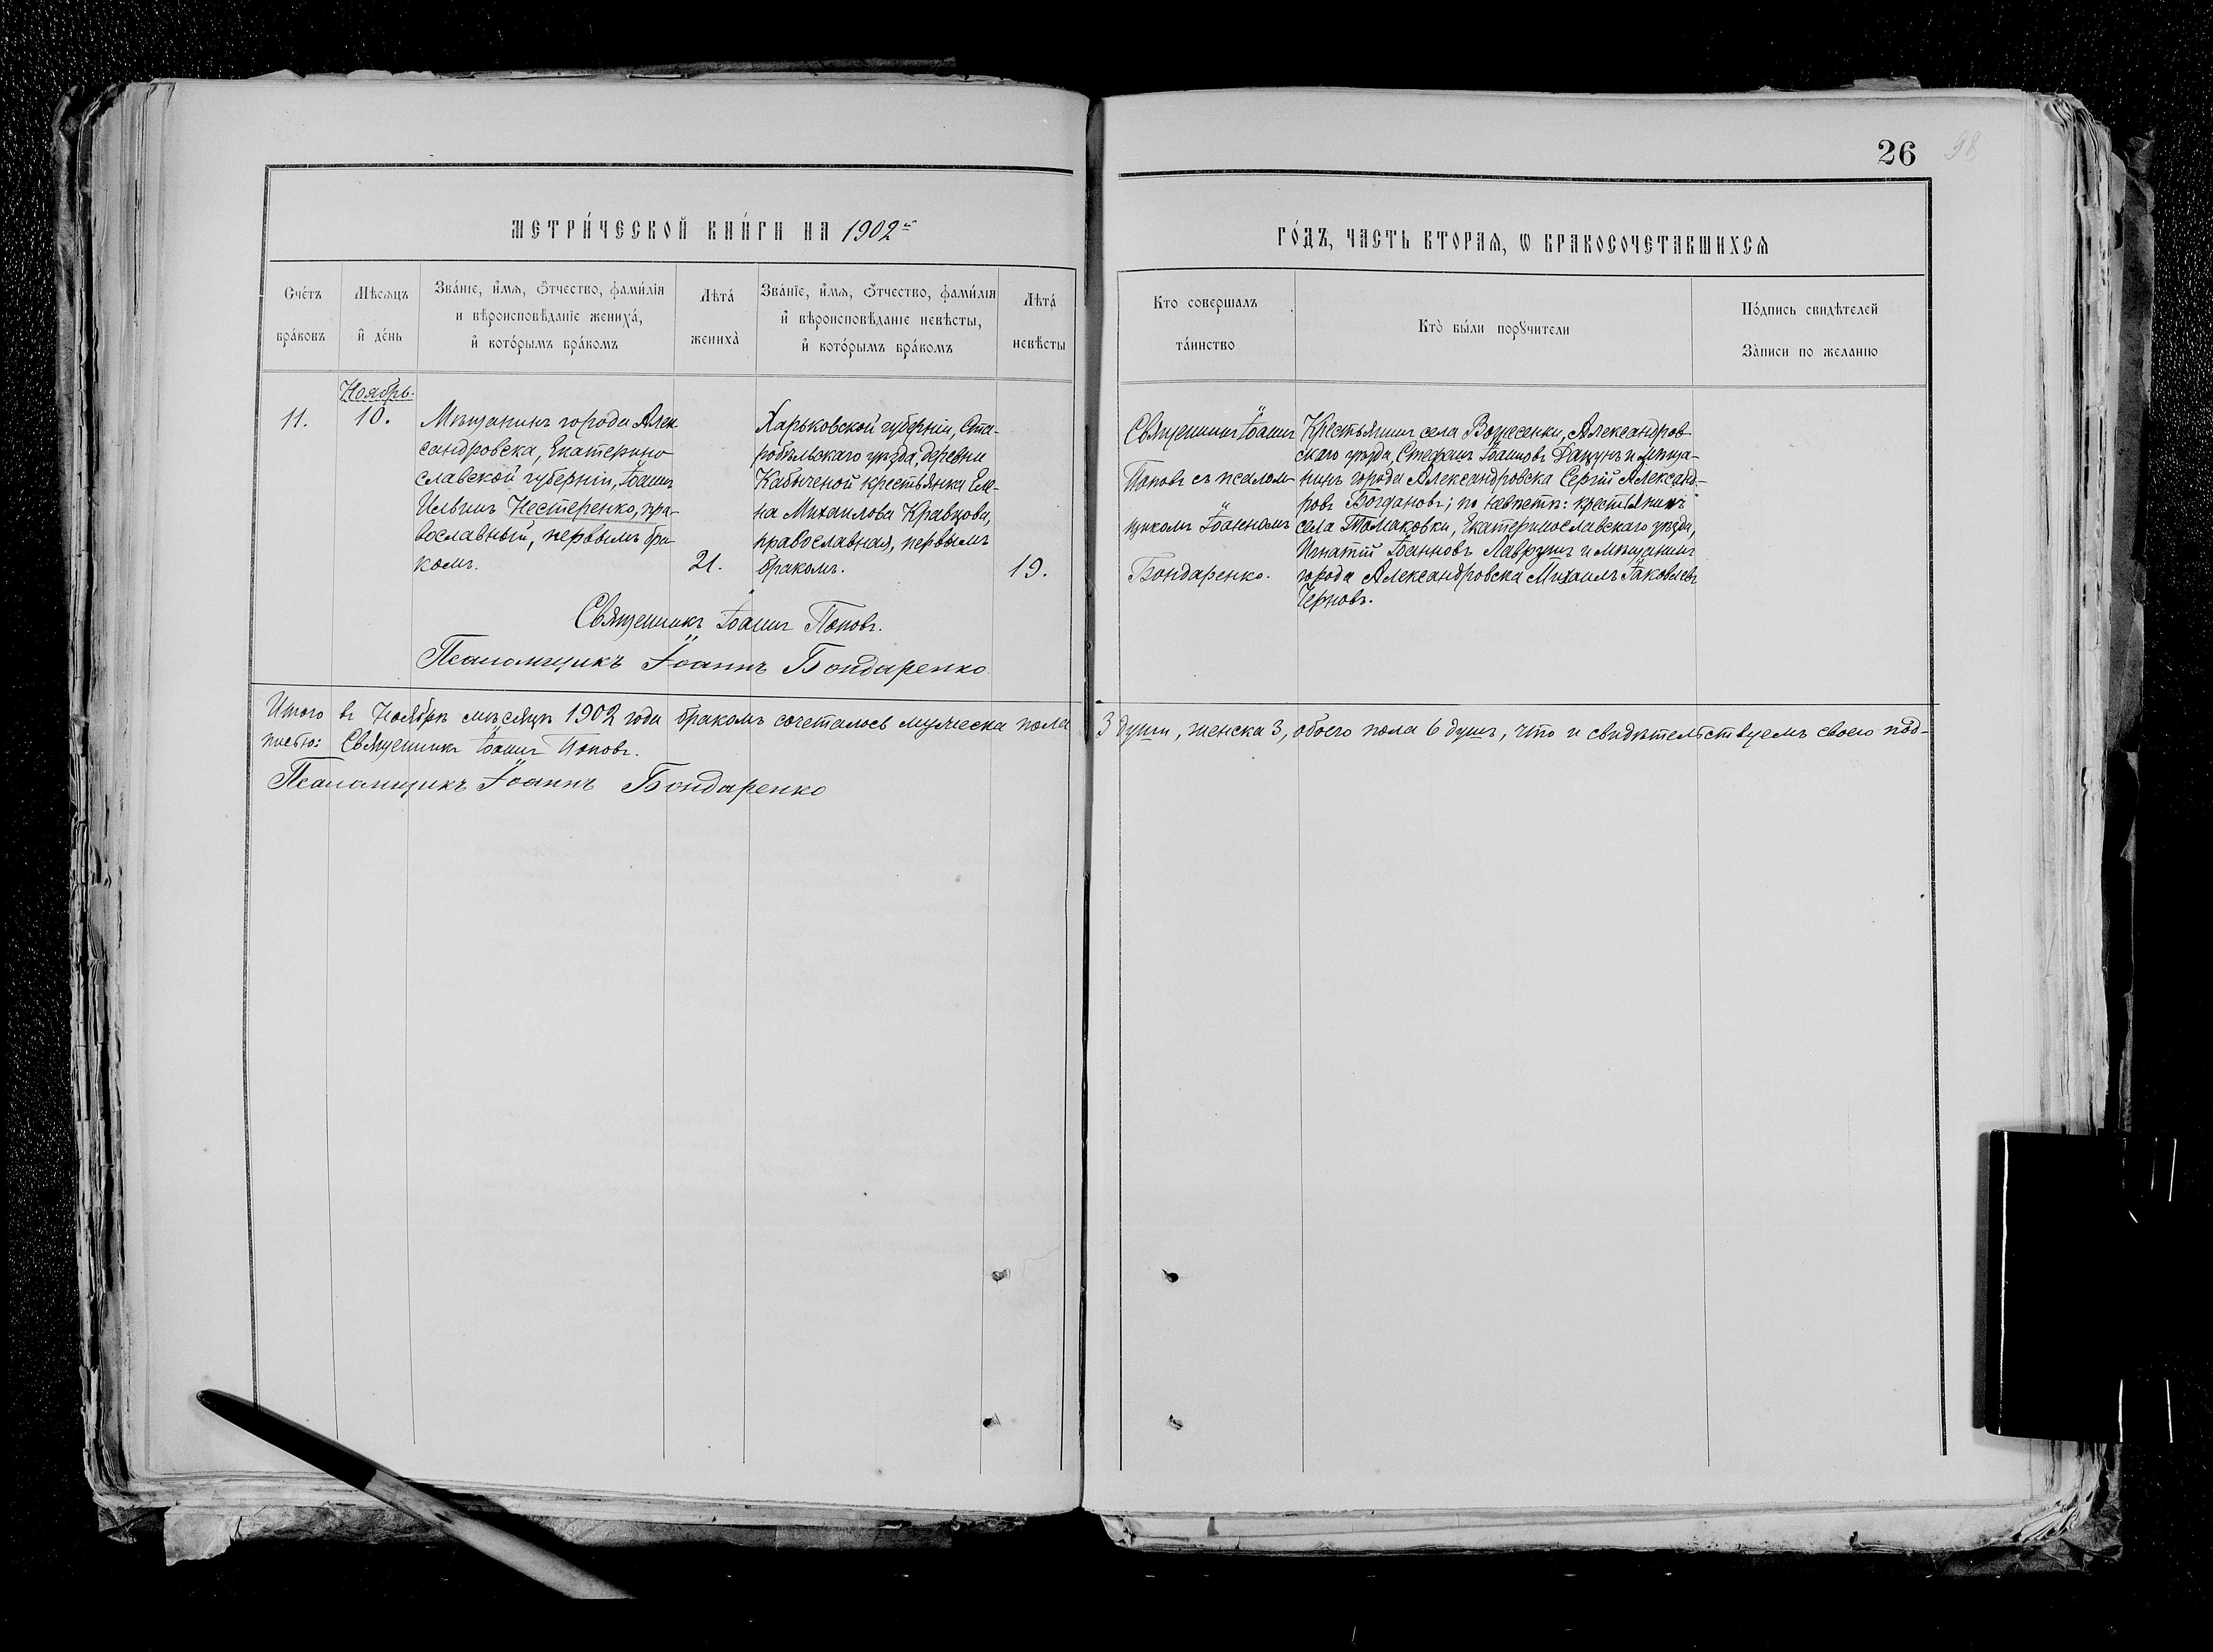 26 98
МЕТРИ́ЧЕСКОЙ КНИ́ГИ НА 1902й
ГО́ДЪ, ЧАСТЬ ВТОРАѦ, Ѡ БРАКОСОЧЕТАВШИХСѦ
Сче́тъ бра́ковъ
Мѣсѧцъ и҆ де́нь
Зва́нїе, и҆́мѧ, ѻ҆́тчество, фами́лїѧ и вѣроисповѣ́данїе жениха̀, и҆ кото́рымъ бра́комъ
Лѣта̀ жениха̀
Зва́нїе, и҆́мѧ, ѻ҆́тчество, фами́лїѧ и҆ вѣроисповѣ́данїе невѣ́сты, и҆ кото́рымъ бра́комъ
Лѣта̀ невѣ́сты
Кто совершалъ та́инство
Кто̀ бы́ли порꙋчители
По́дпись свидѣтелей За́писи по желанїю
Ноябрь.
11.
10.
Мѣщанинъ города Алек
сандровска, Екатерино
славской губерніи, Іоаннъ
Ильинъ Нестеренко, пра-
вославный, первымъ бра-
комъ.
21.
Харьковской губерніи, Ста-
робѣльскаго уѣзда, деревни
крестьянка Еле-
на Михаилова Кравцова,
православная, первымъ
бракомъ.
19.
Священникъ Іоаннъ
Поповъ съ псалом-
щикомъ Іоанномъ
Бондаренко.
Крестьянинъ села Вознесенки, Александров
скаго уѣзда, Стефанъ Іоанновъ и мѣща-
нинъ города Александровска Сергій Александ-
ровъ Богдановъ; по невѣстѣ: крестьянинъ
села Томаковки, Екатеринославскаго уѣзда,
Игнатій Іоанновъ и мѣщанинъ
города Александровска Михаилъ Іаковлевъ
Черновъ.
Священникъ Іоаннъ Поповъ.
Псаломщикъ Іоаннъ Бондаренко.
Итого въ Ноябрѣ мѣсяцѣ 1902 года бракомъ сочеталось мужеска пола 3 души, женска 3, обоего пола 6 душъ, что и свидѣтельствуемъ своею под-
писью: Священникъ Іоаннъ Поповъ.
Псаломщикъ Іоаннъ Бондаренко